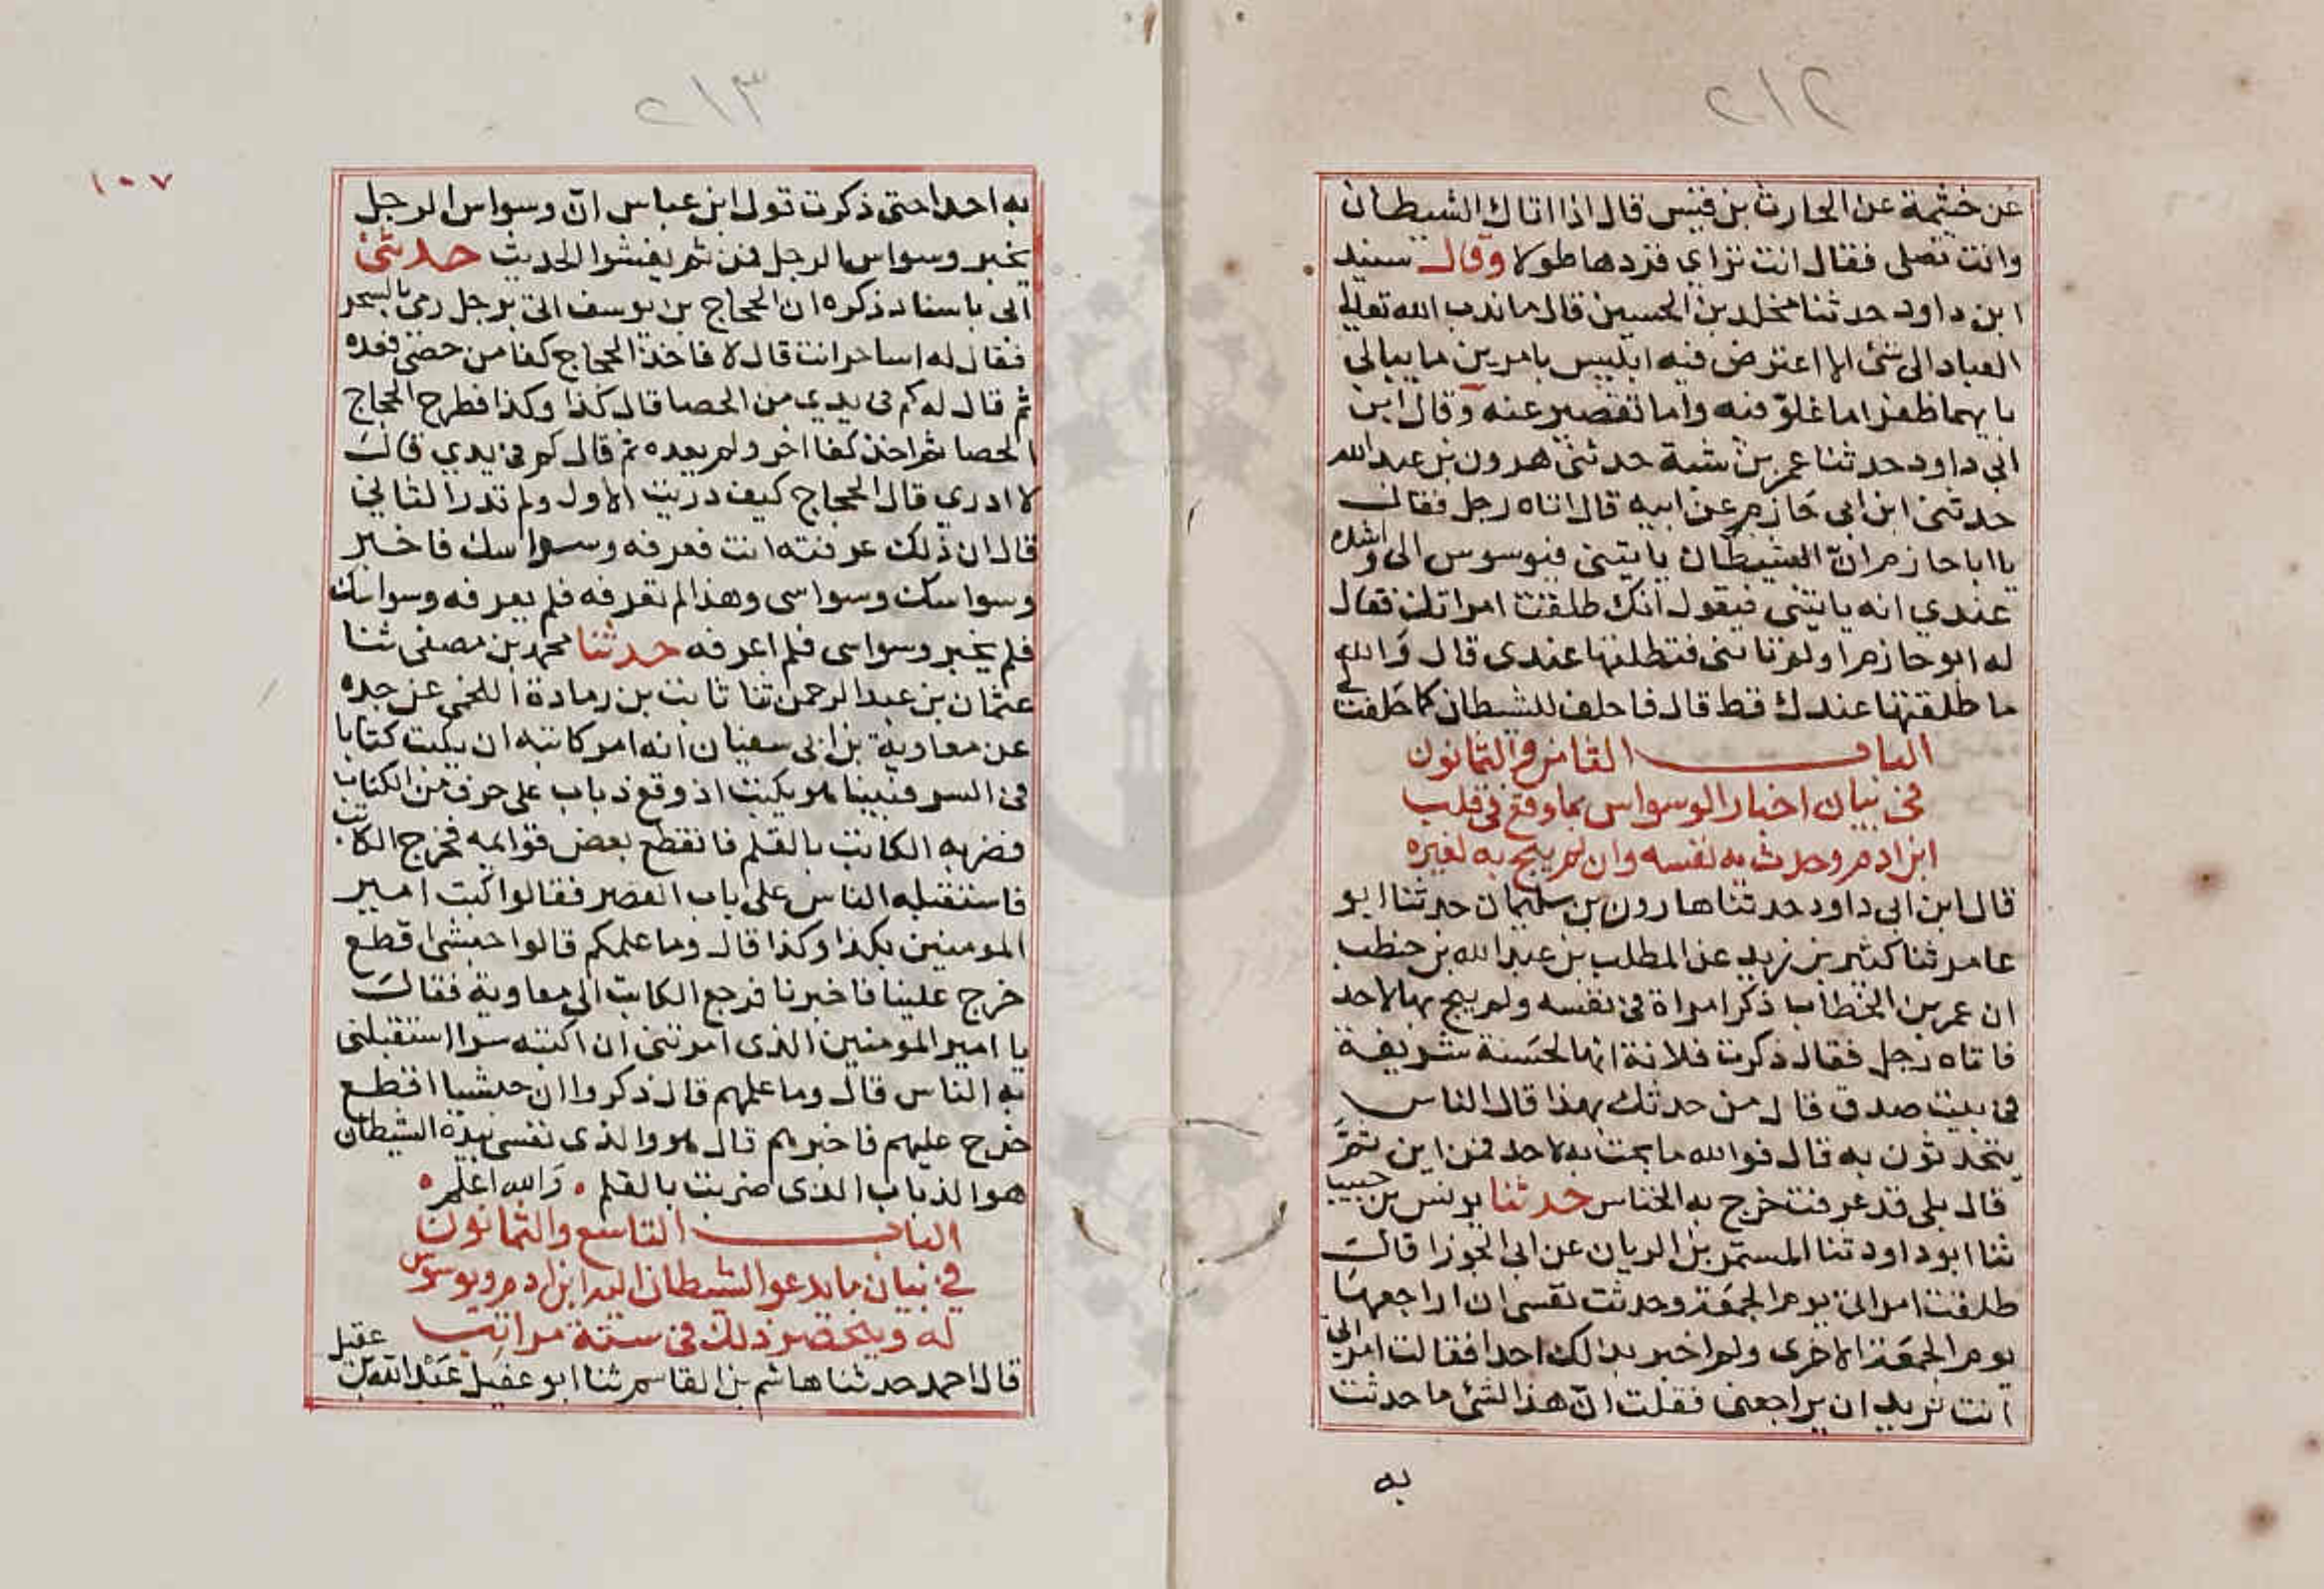 ٢١٢
عن خيثمة عن الحارث بن قيس قال اذا اتاك الشيطان
وانت تصلى فقال انت ترائي فزدها طولا وقال سند
ابن داود حدثنا مخلد بن الحسين قال ما ندب الله تعالى
العباد الى شئ الا اعترض فيه ابليس بامرين ما يبالي
بايهما ظفر اما غلوّ فيه واما تقصير عنه وقال ابن
ابى داود حدثنا عمر بن شبة حدثنى هرون بن عبد الله
حدثنى ابن ابى حازم عن ابيه قال اتاه رجل فقال
يا ابا حازم انّ الشيطان ياتينى فيوسوس الى واشده
عندي انه ياتينى فيقول انك طلقت امراتك فقال
له ابو حازم اولم تاتنى فتطلقها عندى قال والله
ما طلقتها عندك قط قال فاحلف للشيطان كما حلفت لى
الباب الثامن والثمانون
فى بيان اخبار الوسواس بما وقع فى قلب
ابن ادم وحدث به نفسه وان لم يبح به لغيره
قال ابن ابى داود حدثنا هارون بن سليمان حدثنا ابو
عامر ثنا كثير بن زيد عن المطلب بن عبد الله بن حنطب
ان عمر بن الخطاب ذكر امراة فى نفسه ولم يبح بها لاحد
فاتاه رجل فقال ذكرت فلانة انها لحسنة شريفة
فى بيت صدق قال من حدثك بهذا قال الناس
يتحدثون به قال فوالله ما بحت به لاحد فمن اين ثمّ
قال بلى قد عرفت خرج به الخناس حدثنا يونس بن حبيب
ثنا ابو داود ثنا المستمر بن الريان عن ابى الجوزا قال
طلقت امراتى يوم الجمعة وحدثت نفسى ان اراجعها
يوم الجمعة الاخرى ولم اخبر بذلك احدا فقالت امراتى
انت تريد ان يراجعنى فقلت انّ هذا لشئ ما حدثت
به
٢١٣
١٠٧
به احدا حتى ذكرت قول ابن عباس انّ وسواس الرجل
يخبر وسواس الرجل فمن ثم يفشوا الحديث حدثنى
ابى باسناد ذكره ان الحجاج بن يوسف اتى برجل رمى بالسحر
فقال له اساحر انت قال لا فاخذ الحجاج كفا من حصى فعده
ثم قال له كم فى يدي من الحصا قال كذا وكذا فطرح الحجاج
الحصا ثم اخذ كفا اخر ولم يعده ثم قال كم فى يدي قال
لا ادري قال الحجاج كيف دريت الاول ولم تدر الثاني
قال ان ذلك عرفته انت فعرفه وسواسك فاخبر
وسواسك وسواسى وهذا لم تعرفه فلم يعرفه وسواسك
فلم يخبر وسواسى فلم اعرفه حدثنا محمد بن مصفى ثنا
عثمان بن عبد الرحمن ثنا ثابت بن رمادة اللخمى عن جده
عن معاوية بن ابى سفيان انه امر كاتبه ان يكتب كتابا
فى السر فبينا هو يكتب اذ وقع ذباب على حرف من الكتاب
فضربه الكاتب بالقلم فانقطع بعض قوايمه فخرج الكاتب
فاستقبله الناس على باب القصر فقالوا كتب امير
المومنين بكذا وكذا قال وما علمكم قالوا حبشى اقطع
خرج علينا فاخبرنا فرجع الكاتب الى معاوية فقال
يا امير المومنين الذى امرتنى ان اكتبه سرا استقبلنى
به الناس قال وما علمهم قال ذكروا ان حبشيا اقطع
خرج عليهم فاخبرهم قال هو والذى نفسى بيده الشيطان
هو الذباب الذى ضربت بالقلم والله اعلم
الباب التاسع والثمانون
فى بيان ما يدعو الشيطان اليه ابن ادم ويوسوس
له وينحصر ذلك فى ستة مراتب
قال احمد حدثنا هاشم بن القاسم ثنا ابو عقيل عبد الله بن عقيل